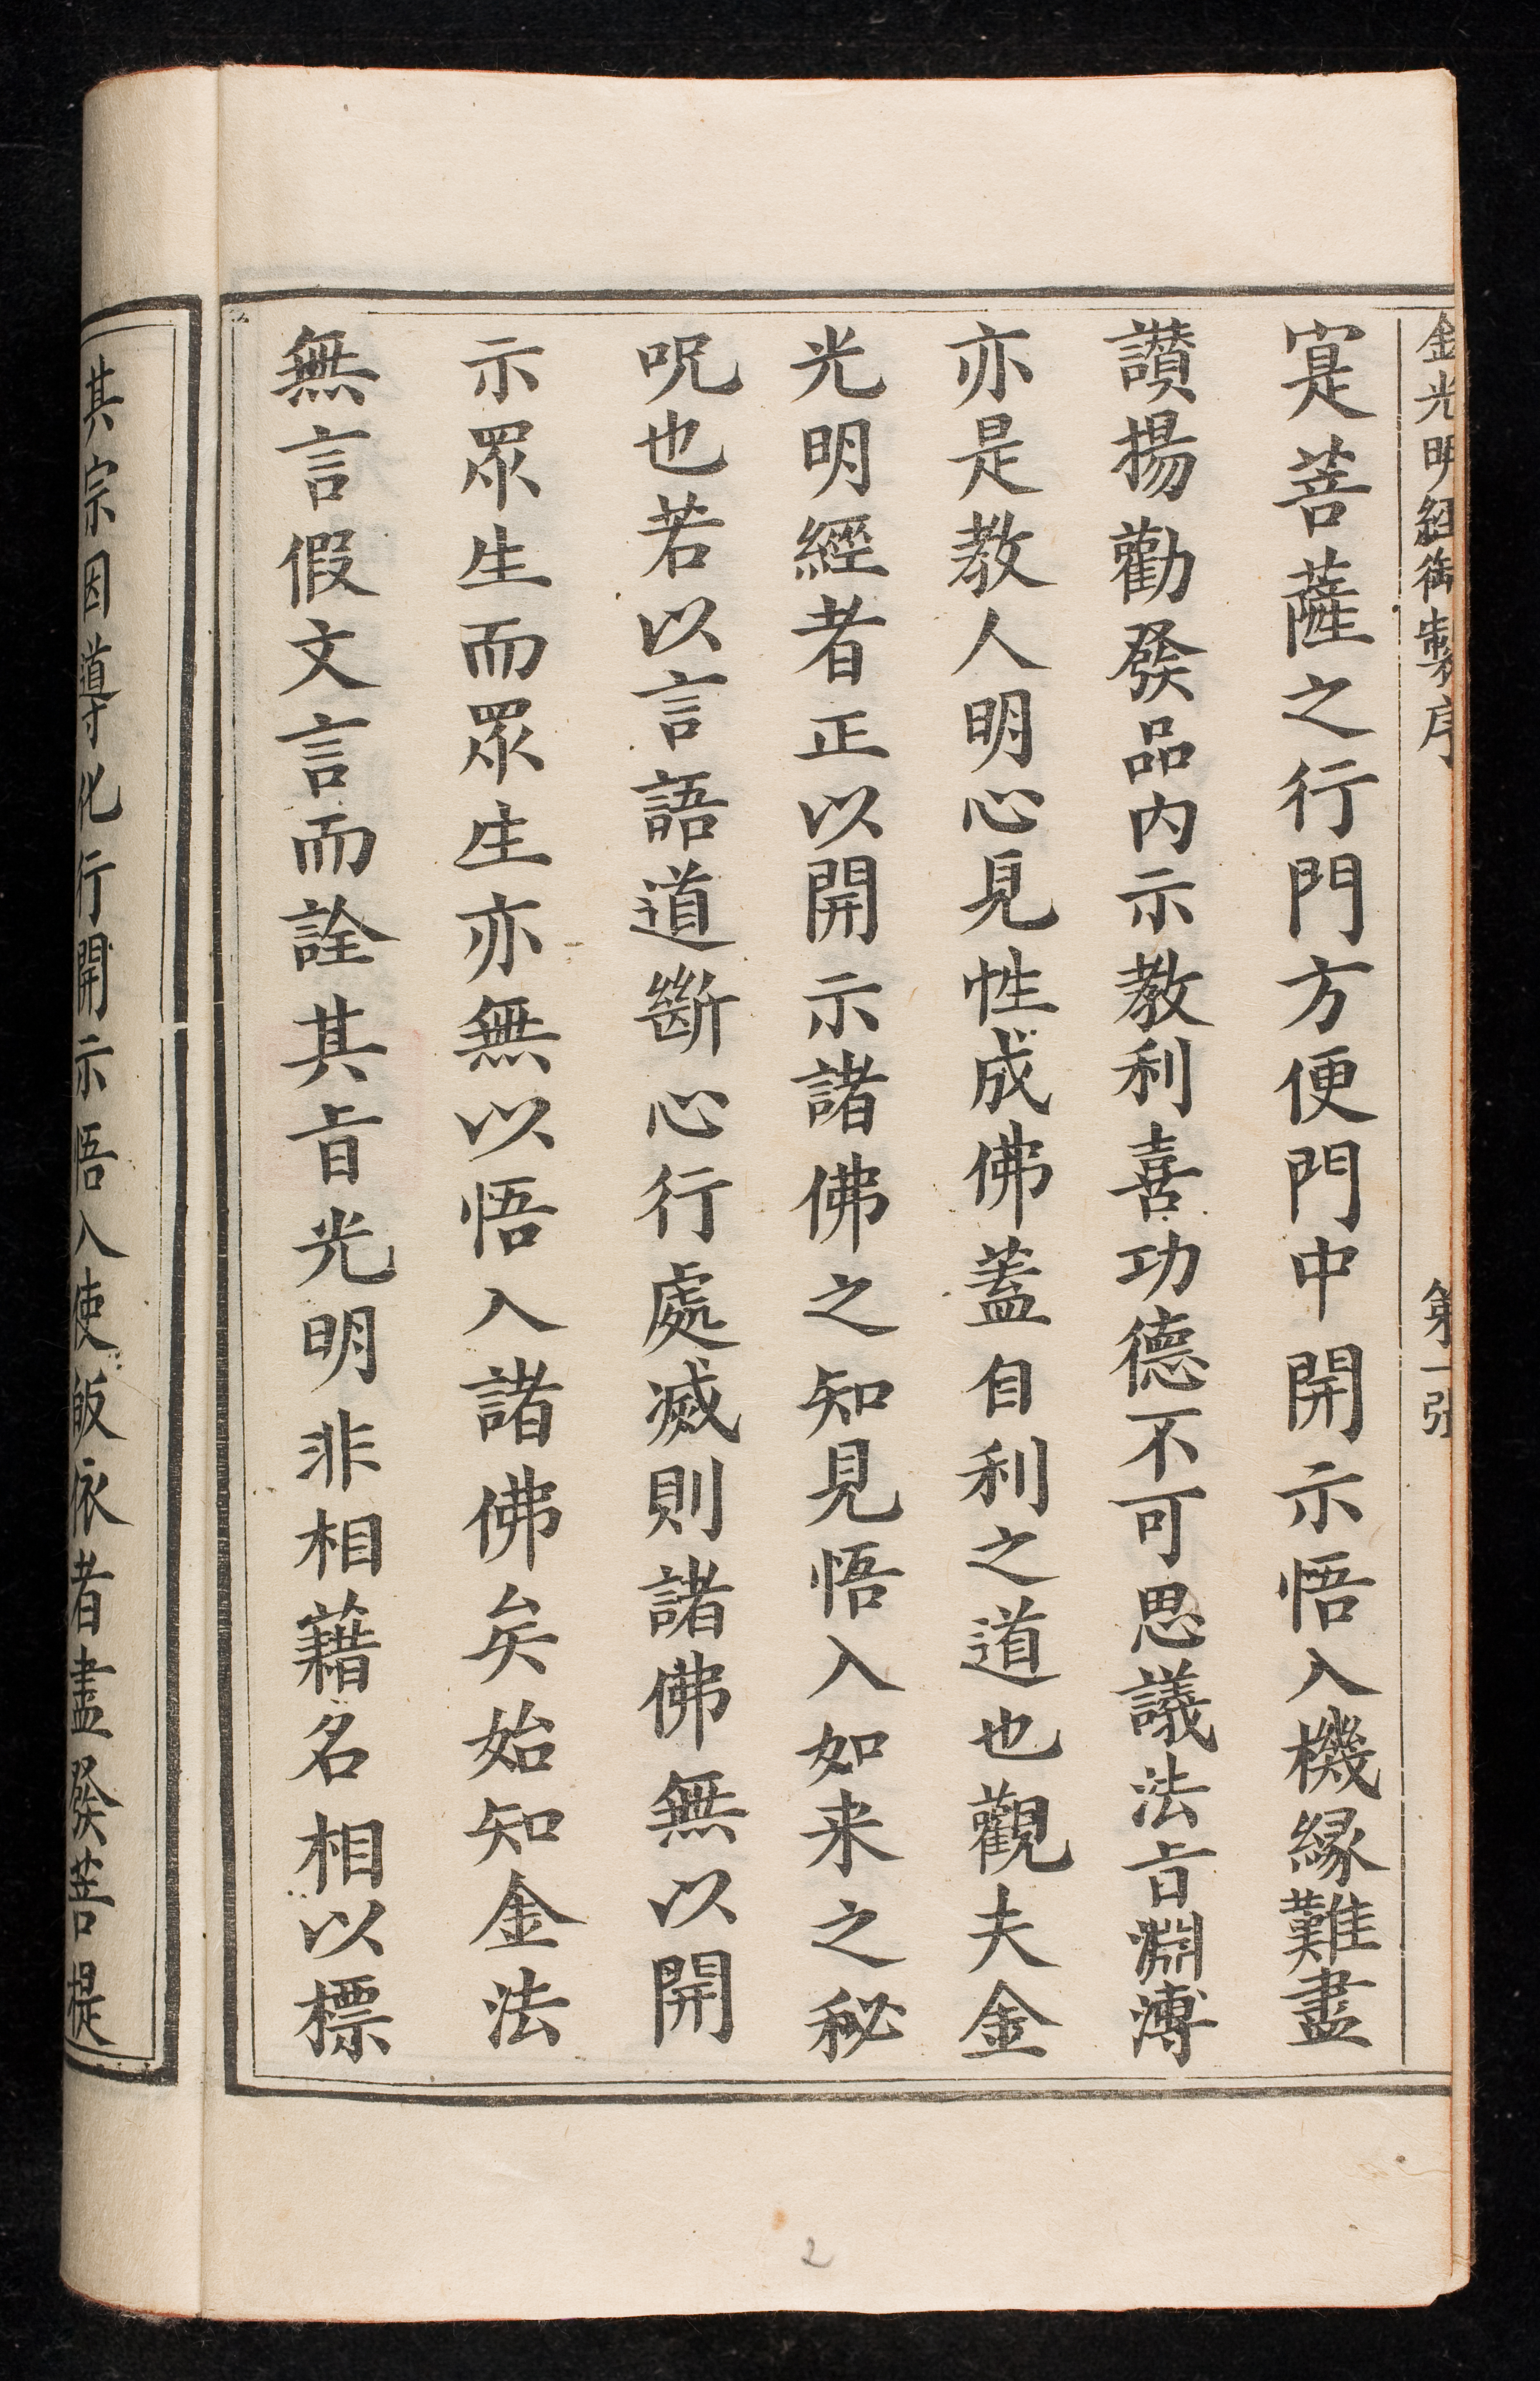 金光明經御製序 第一張
寔菩薩之行門方便門中開示悟入機緣難盡
讃揚勸發品内示教利喜功德不可思議法㫖淵溥
亦是教人明心見性成佛蓋自利之道也觀夫金
光明經者正以開示諸佛之知見悟入如来之秘
呪也若以言語道斷心行處滅則諸佛無以開
示眾生而眾生亦無以悟入諸佛矣始知金法
無言假文言而詮其㫖光明非相藉名相以標
其宗因導化行開示悟入使皈依者盡發菩提
2